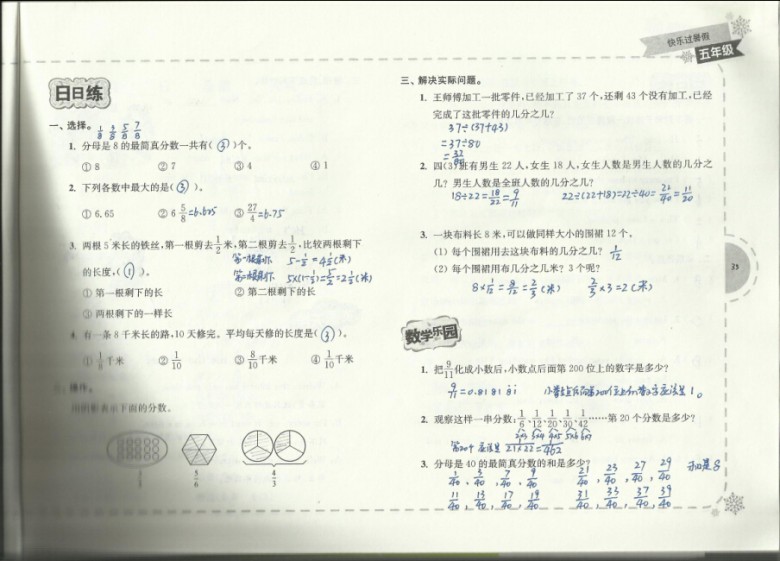 快乐过暑假
五年级
日日练
一、选择。 1/8 3/8 5/8 7/8
1. 分母是 8 的最简真分数一共有( ③ )个。
① 8 ② 7 ③ 4 ④ 1
2. 下列各数中最大的是( ③ )。
① 6.65 ② 6 5/8 =6.625 ③ 27/4 =6.75
3. 两根 5 米长的铁丝,第一根剪去 1/2 米,第二根剪去 1/2,比较两根剩下
的长度,( ① )。
5-1/2=4 1/2(米)
5×(1-1/2)=5/2=2 1/2(米)
① 第一根剩下的长 ② 第二根剩下的长
③ 两根剩下的一样长
4. 有一条 8 千米长的路,10 天修完。平均每天修的长度是( ③ )。
① 1/8 千米 ② 1/10 ③ 8/10 千米 ④ 1/10 千米
二、操作。
用阴影表示下面的分数。
5/6
4/3
三、解决实际问题。
1. 王师傅加工一批零件,已经加工了 37 个,还剩 43 个没有加工,已经
完成了这批零件的几分之几?
37÷(37+43)
=37÷80
=37/80
2. 四(3)班有男生 22 人,女生 18 人,女生人数是男生人数的几分之
几? 男生人数是全班人数的几分之几?
18÷22=18/22=9/11 22÷(22+18)=22÷40=22/40=11/20
3. 一块布料长 8 米,可以做同样大小的围裙 12 个。
(1) 每个围裙用去这块布料的几分之几? 1/12
(2) 每个围裙用布几分之几米? 3 个呢?
8×1/12=8/12=2/3(米) 2/3×3=2(米)
35
数学乐园
1. 把 9/11 化成小数后,小数点后面第 200 位上的数字是多少?
9/11=0.8181 81
2. 观察这样一串分数: 1/6、1/12、1/20、1/30、1/42……第 20 个分数是多少?
2×3 3×4 4×5 5×6 6×7
第20个 应该是 1/21×22=1/462
3. 分母是 40 的最简真分数的和是多少?
1/40, 3/40, 7/40, 9/40 21/40, 23/40, 27/40, 29/40 和是8
11/40, 13/40, 17/40, 19/40 31/40, 33/40, 37/40, 39/40